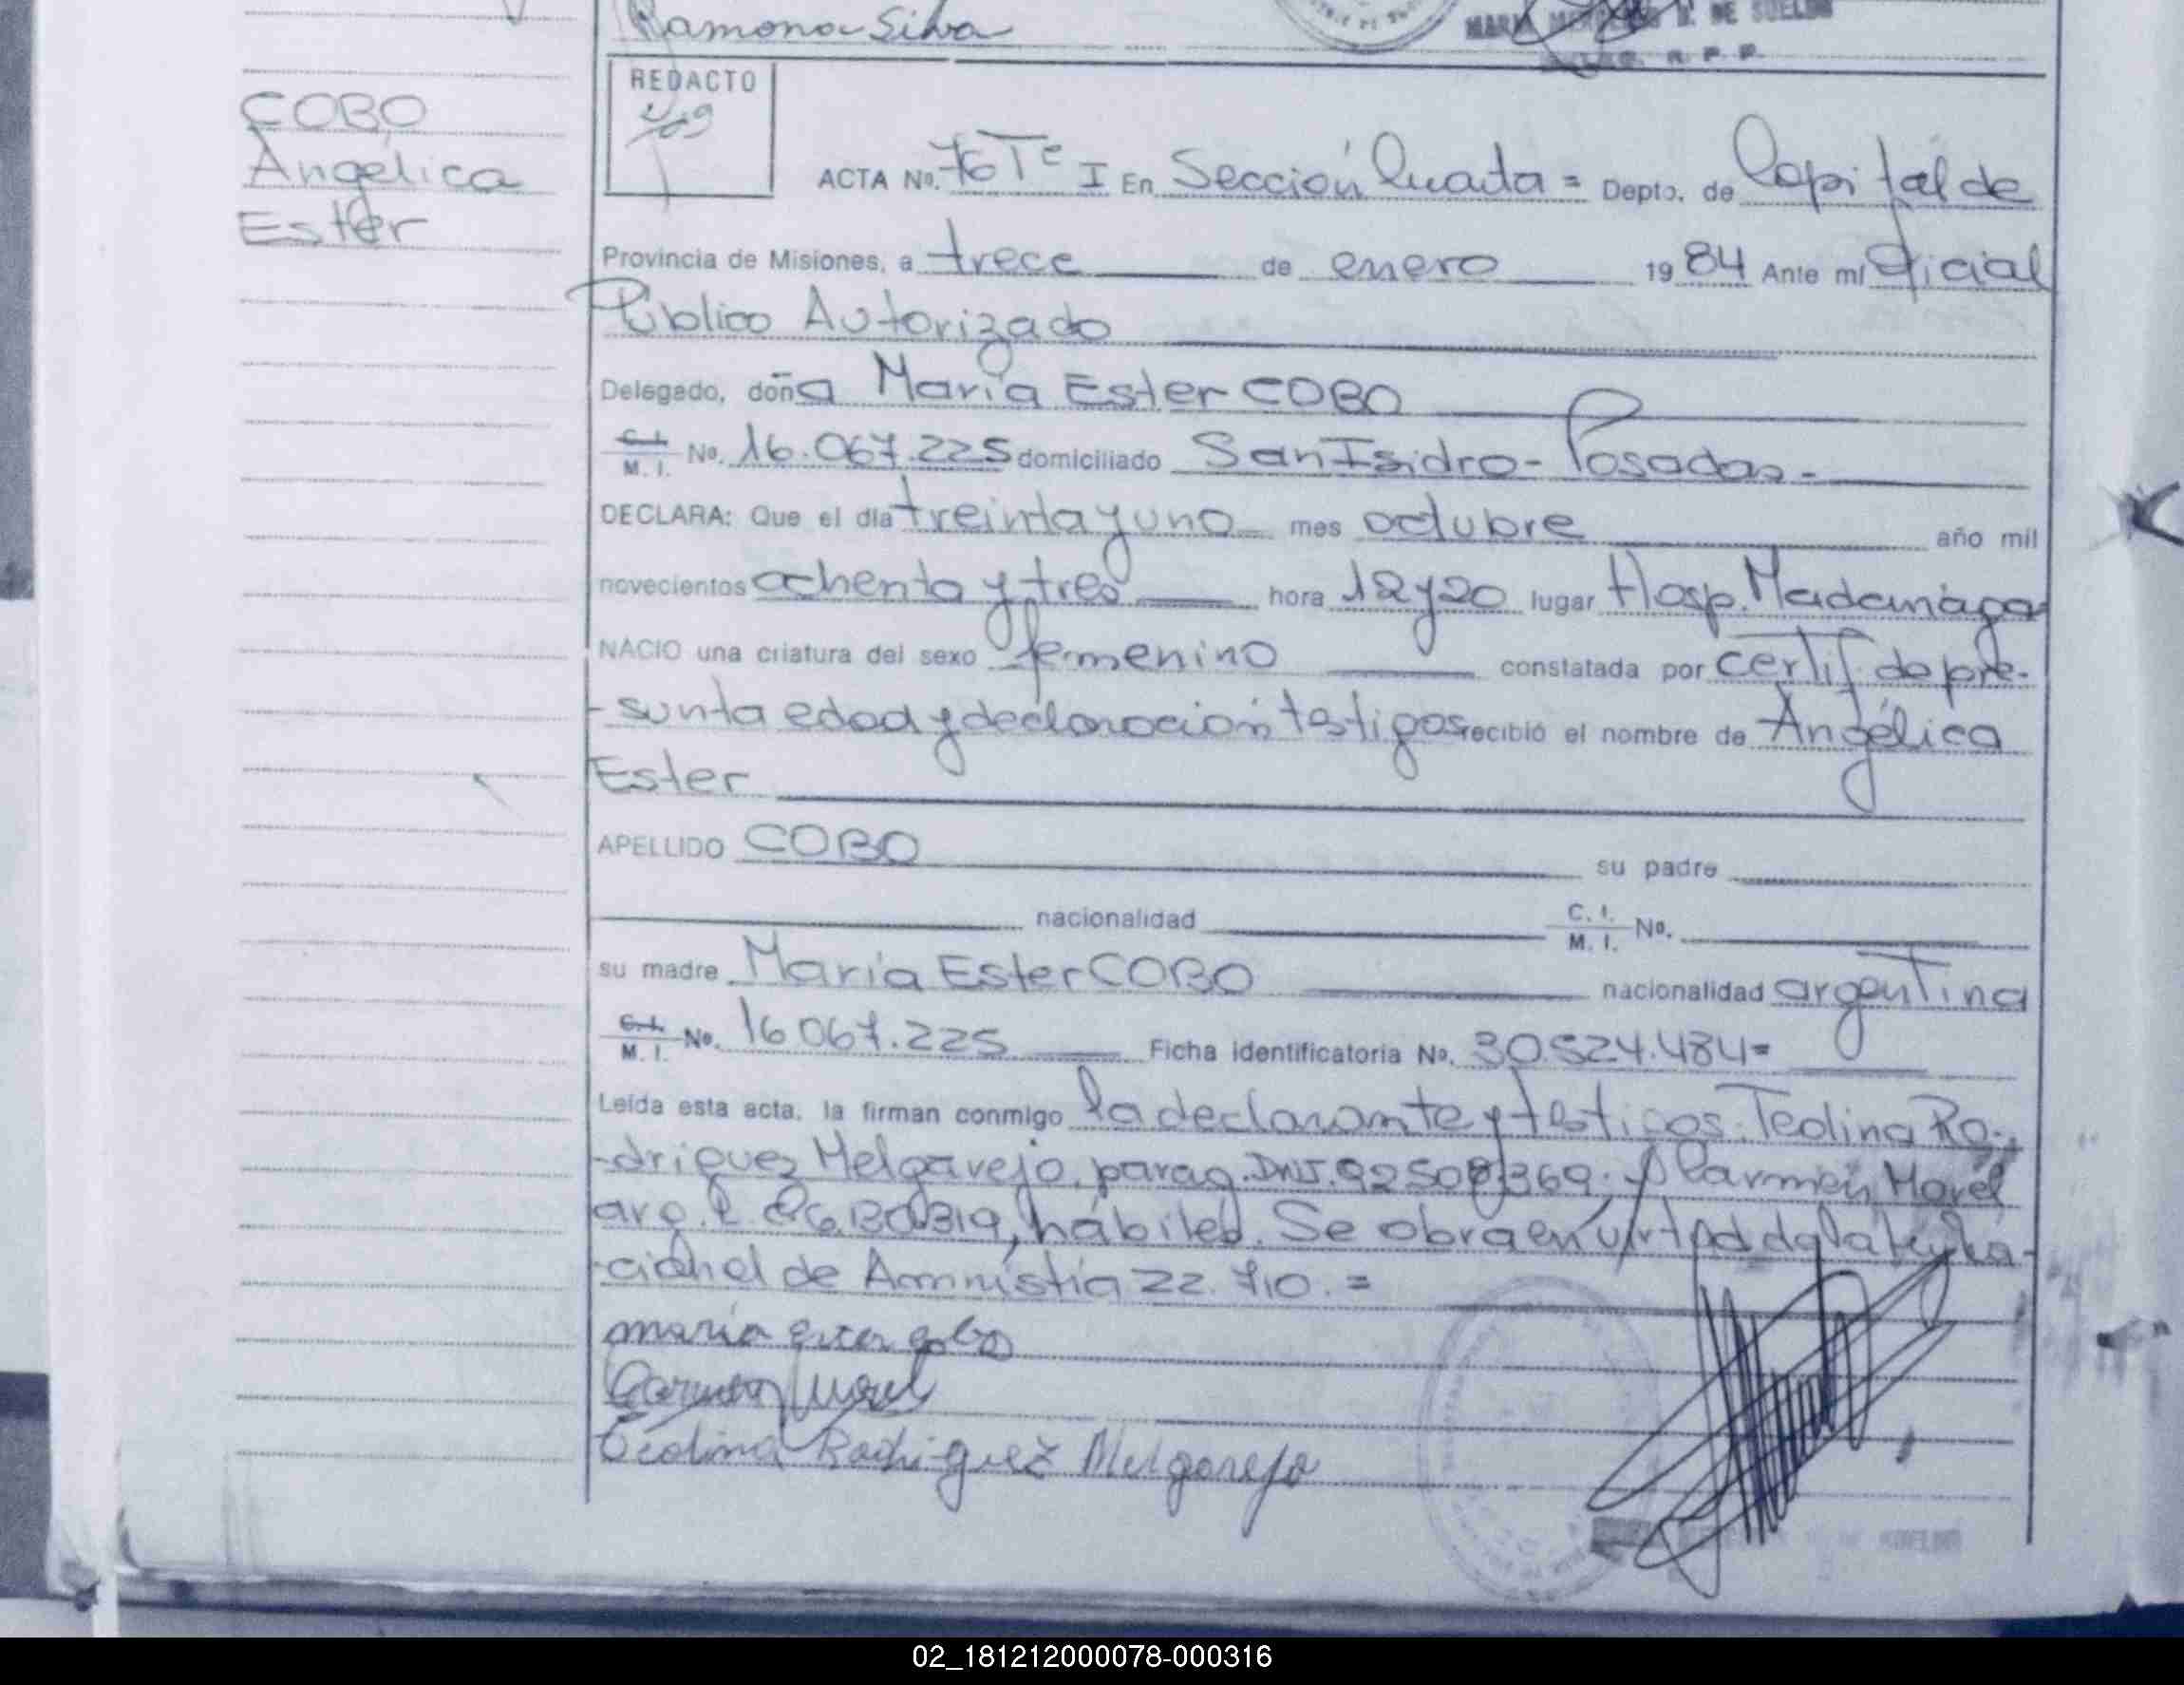 Ramona Silva
MARIA DE SUELDO
R. P. P.
REDACTO
COBO
Angélica
Ester
ACTA Nº. 76 Tº I En Sección Cuarta = Depto. de Capital de
Provincia de Misiones, a trece de enero 1984 Ante mí Oficial
Público Autorizado
Delegado, doña María Ester COBO
C. I. M. I. No. 16.067.225 domiciliado San Isidro - Posadas -
DECLARA: Que el día treinta y uno mes octubre año mil
novecientos ochenta y tres hora 12 y 20 lugar Hosp. Madariaga
NACIO una criatura del sexo femenino constatada por certif. de pre-
- sunta edad y declaración testigos recibió el nombre de Angélica
Ester
APELLIDO COBO su padre
nacionalidad C. I. M. I. No.
su madre María Ester COBO nacionalidad argentina
C. I. M. I. No. 16067.225 Ficha identificatoria No. 30.524.484=
Leída esta acta, la firman conmigo la declarante y testigos: Teolina Ro-
-driguez Melgarejo, parag. DNI. 92508369; y Carmen Morel
arg. 130.319, hábiles. Se obra en virtud de la Ley Na-
-cional de Amnistía 22.710. =
maria Ester cobo
Carmen Morel
Teolina Rodriguez Melgarejo
02_181212000078-000316